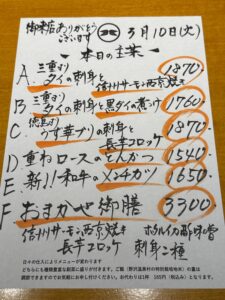 御来店ありがとうございます
3月10日(火)
本日の主菜
A 三重より タイの刺身と信州サーモン西京焼き 1870
B 三重より タイの刺身と黒ダイの煮つけ 1760
C 徳島より うず華ブリの刺身と長芋コロッケ 1870
D 重ねロースのとんかつ 1540
E 新!和牛のメンチカツ 1650
F おまかせ御膳 3300
信州サーモン西京焼き ホタルイカ酢味噌
長芋コロッケ 刺身二種
日々の仕入によりメニューが変わります